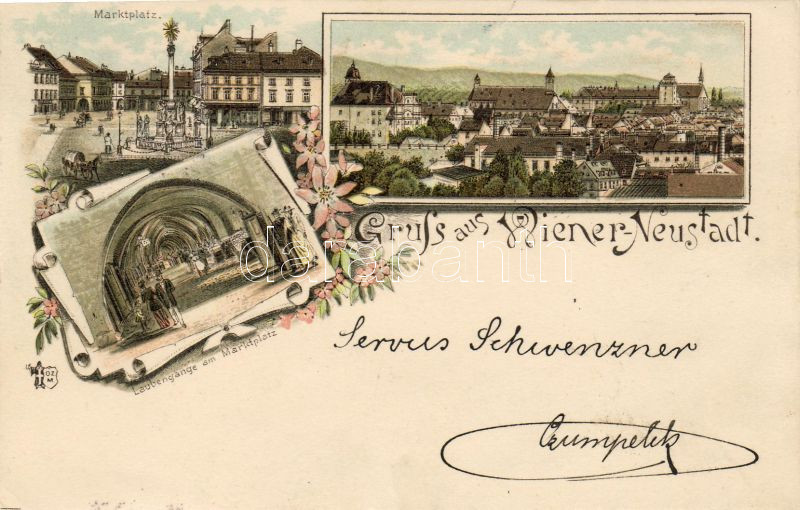 Marktplatz.
Gruss aus Wiener-Neustadt.
Laubengänge am Marktplatz
OZ
M
Servus Schwenzner
darabanth